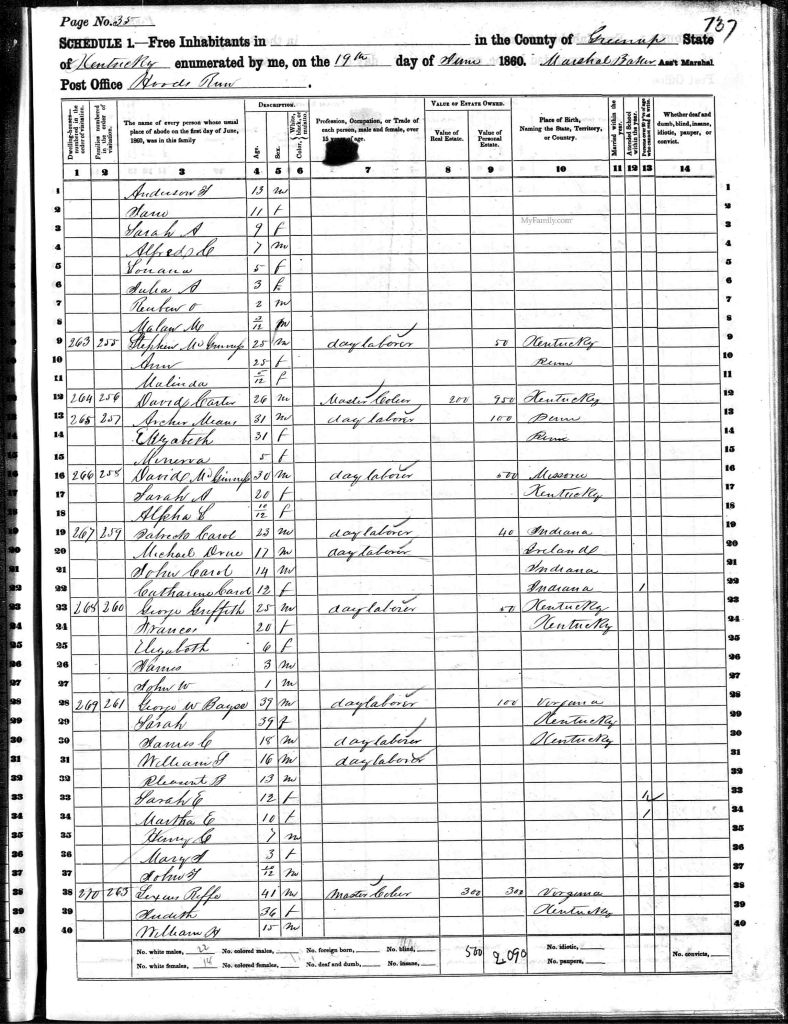 Page No. 35
737
SCHEDULE 1.—Free Inhabitants in ______ in the County of Greenup State
of Kentucky enumerated by me, on the 19th day of June 1860. Marshal Baker Ass't Marshal
Post Office Hoods Run
Dwelling-houses—numbered in the order of visitation.
Families numbered in the order of visitation.
The name of every person whose usual place of abode on the first day of June, 1860, was in this family
DESCRIPTION.
Age.
Sex.
Color, White, black, or mulatto.
Profession, Occupation, or Trade of each person, male and female, over 15 years of age.
VALUE OF ESTATE OWNED.
Value of Real Estate.
Value of Personal Estate.
Place of Birth, Naming the State, Territory, or Country.
Married within the year.
Attended School within the year.
Persons over 20 y'rs of age who cannot read & write.
Whether deaf and dumb, blind, insane, idiotic, pauper, or convict.
1 2 3 4 5 6 7 8 9 10 11 12 13 14
1 Anderson 13 m 1
2 11 f 2
MyFamily.com
3 Sarah A 9 f 3
4 Alfred C 7 m 4
5 Louana 5 f 5
6 Julia A 3 f 6
7 Reuben O 2 m 7
8 M 3/12 m 8
9 263 255 Stephen McGinnis 25 m day laborer 50 Kentucky 9
10 Ann 25 f Penn 10
11 Malinda 5/12 f 11
12 264 256 David Carter 26 m Master Colier 200 950 Kentucky 12
13 265 257 Archer Means 31 m day laborer 100 Penn 13
14 Elizabeth 31 f Penn 14
15 Minerva 5 f 15
16 266 258 David McGinnis 30 m day laborer 500 Missorie 16
17 Sarah A 20 f Kentucky 17
18 Alpha E 10/12 f 18
19 267 259 Patrick Carol 23 m day laborer 40 Indiana 19
20 Michael 17 m day laborer Ireland 20
21 John Carol 14 m Indiana 21
22 Catharine Carol 12 f Indiana 1 22
23 268 260 George Griffith 25 m day laborer 50 Kentucky 23
24 Frances 20 f Kentucky 24
25 Elizabeth 6 f 25
26 James 3 m 26
27 John W 1 m 27
28 269 261 George W Bayse 39 m day laborer 100 Virginia 28
29 Sarah 39 f Kentucky 29
30 James C 18 m day laborer Kentucky 30
31 William 16 m day laborer 31
32 Pleasant B 13 m 32
33 Sarah E 12 f 1 33
34 Martha E 10 f 1 34
35 Henry C 7 m 35
36 Mary 3 f 36
37 John 10/12 m 37
38 270 263 Riffe 41 m Master Colier 300 300 Virginia 38
39 Judith 36 f Kentucky 39
40 William H 15 m 40
No. white males, 22 No. colored males, No. foreign born, No. blind, 500 2,090 No. idiotic, No. convicts,
No. white females, 18 No. colored females, No. deaf and dumb, No. insane, No. paupers,